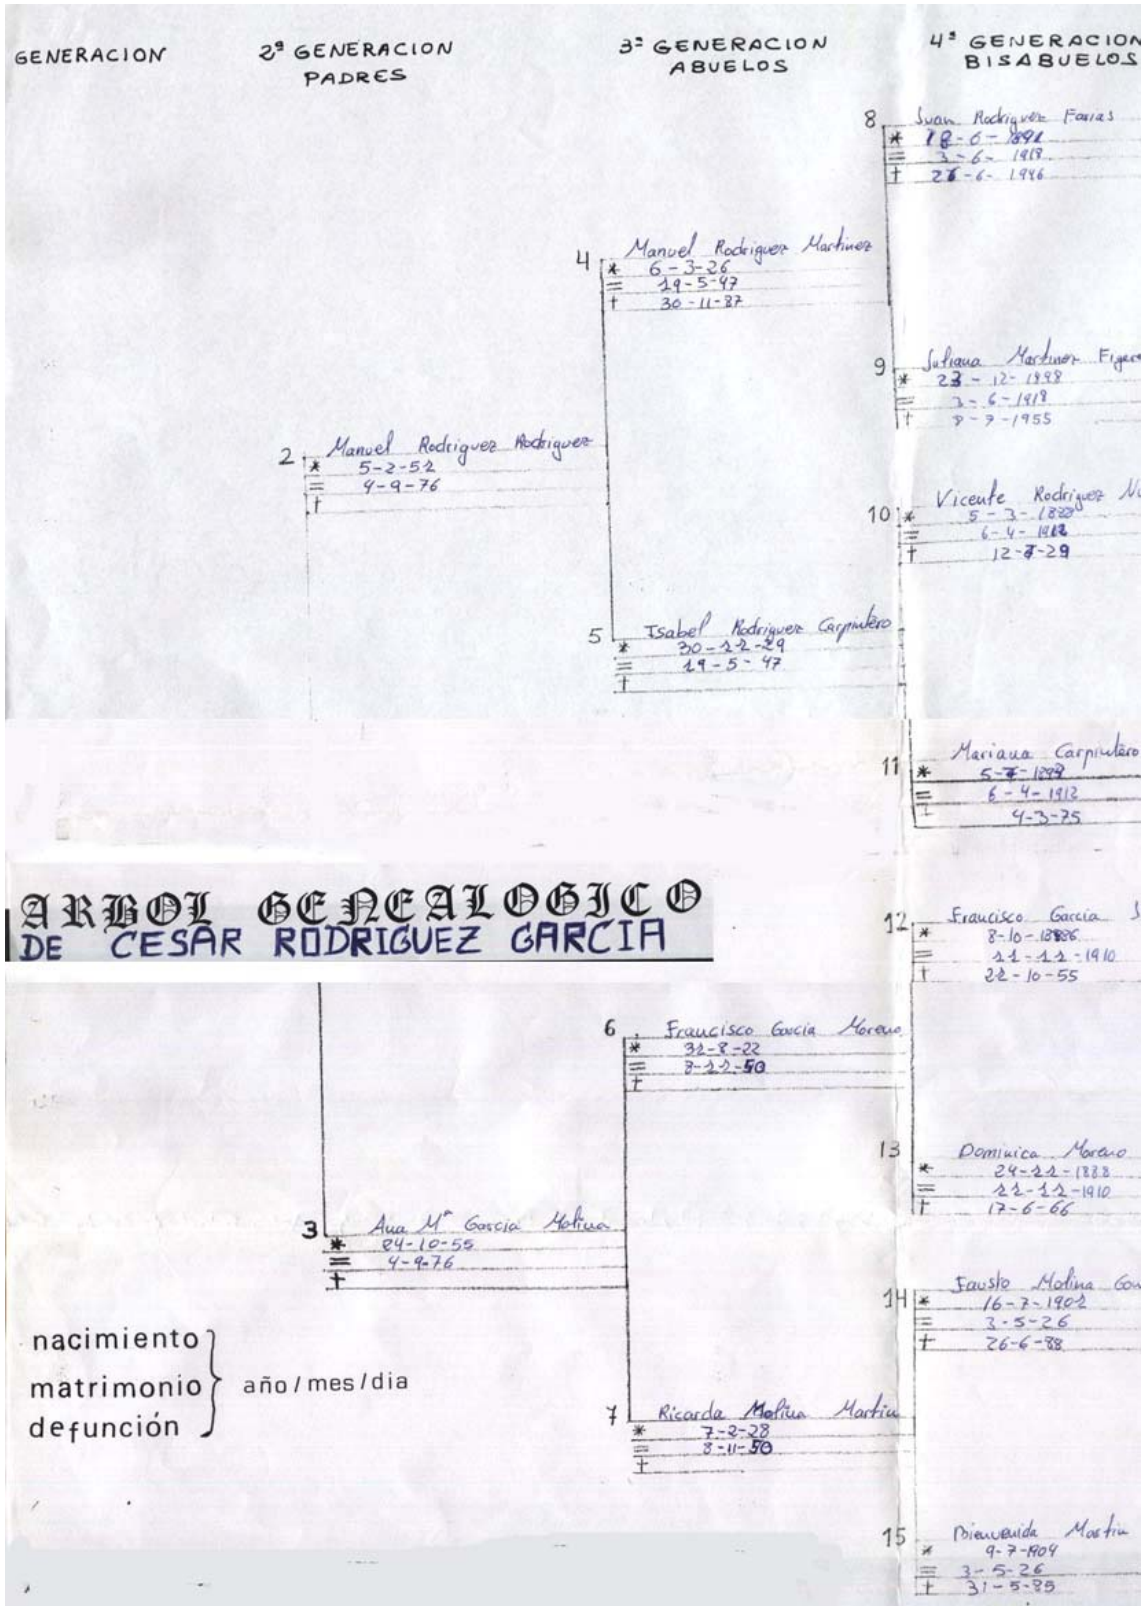 GENERACION
2ª GENERACION
PADRES
3ª GENERACION
ABUELOS
4ª GENERACION
BISABUELOS
8 Juan Rodriguez Farias
* 18-6-1891
= 3-6-1918
† 26-6-1946
4 Manuel Rodriguez Martinez
* 6-3-26
= 19-5-47
† 30-11-87
9 Juliana Martinez
* 23-12-1898
= 3-6-1918
† 8-7-1955
2 Manuel Rodriguez Rodriguez
* 5-2-52
= 4-9-76
†
10 Vicente Rodriguez
* 5-3-
= 6-4-1912
† 12-7-29
5 Isabel Rodriguez Carpintero
* 30-12-29
= 19-5-47
†
11 Mariana Carpintero
*
= 6-4-1912
† 4-3-75
ARBOL GENEALOGICO
DE CESAR RODRIGUEZ GARCIA
12 Francisco Garcia
* 8-10-1886
= 11-11-1910
† 22-10-55
6 Francisco Garcia Moreno
* 31-8-22
= 8-11-50
†
13 Dominica Moreno
* 24-11-1888
= 11-11-1910
† 17-6-66
3 Ana Mª Garcia Molina
* 24-10-55
= 4-9-76
†
14 Fausto Molina
* 16-7-1901
= 3-5-26
† 26-6-88
nacimiento
matrimonio
defunción
año/mes/dia
7 Ricarda Molina Martin
* 7-2-28
= 8-11-50
†
15 Bienvenida Martin
* 9-7-1904
= 3-5-26
† 31-5-85